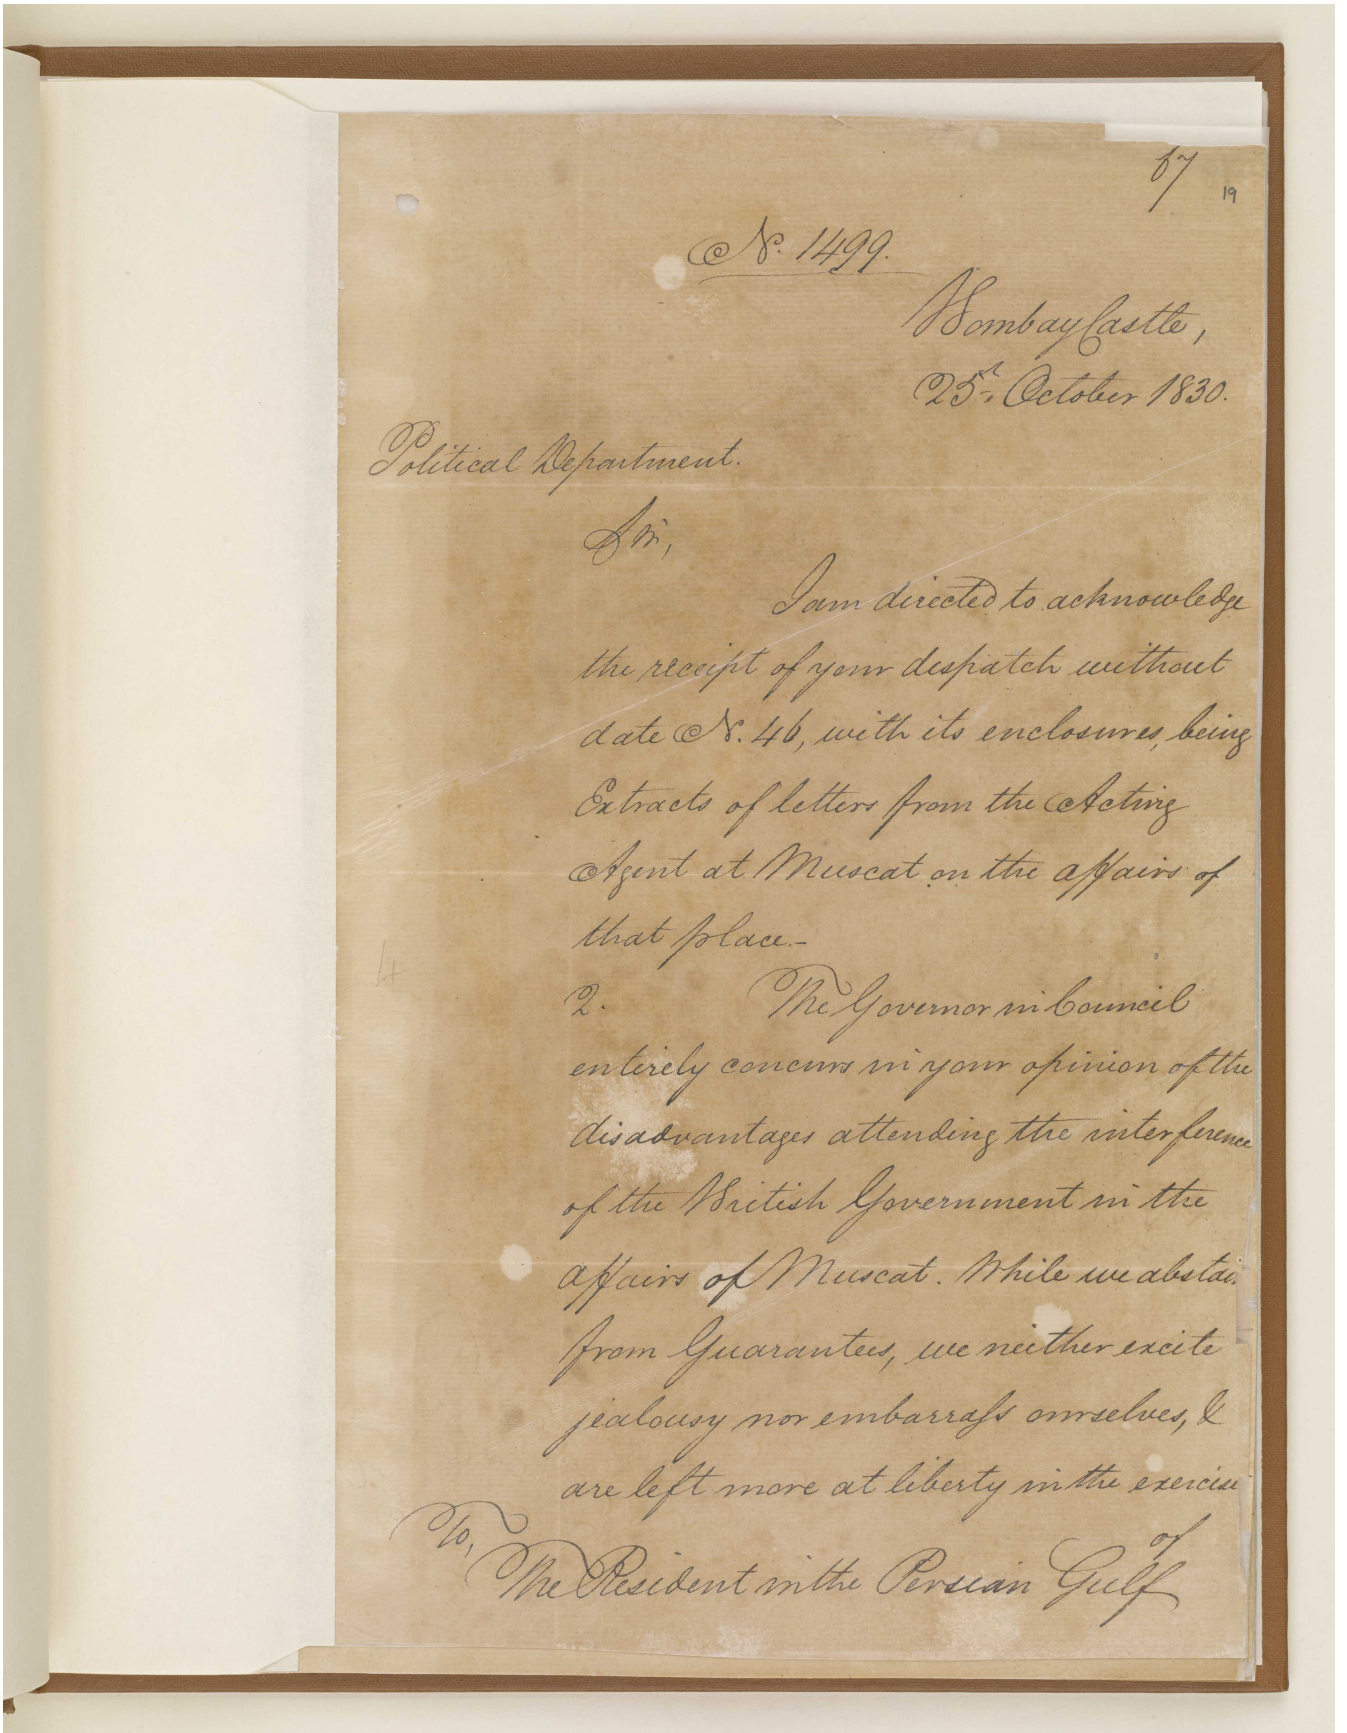 67
19
No. 1499.
Bombay Castle,
25th October 1830.
Political Department.
Sir,
I am directed to acknowledge
the receipt of your despatch without
date No. 46, with its enclosures, being
Extracts of letters from the Acting
Agent at Muscat on the affairs of
that place.-
2. The Governor in Council
entirely concurs in your opinion of the
disadvantages attending the interference
of the British Government in the
affairs of Muscat. While we abstai
from Guarantees, we neither excite
jealousy nor embarrass ourselves, &
are left more at liberty in the exercise
of
To,
The Resident in the Persian Gulf
4